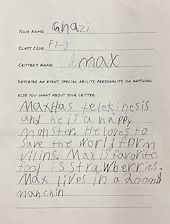 YOUR NAME: Ghazi
CLASS CODE: F1-J
CRITTER'S NAME: max
DESCRIBE AN EVENT, SPECIAL ABILITY, PERSONALITY, OR ANYTHING
ELSE YOU WANT ABOUT YOUR CRITTER:
Max Has telekinesis
and he is a happy
monster. He loves to
save the world form
vilins. Max is favorite
food is strawberries.
Max lives in a zoomb
manchin